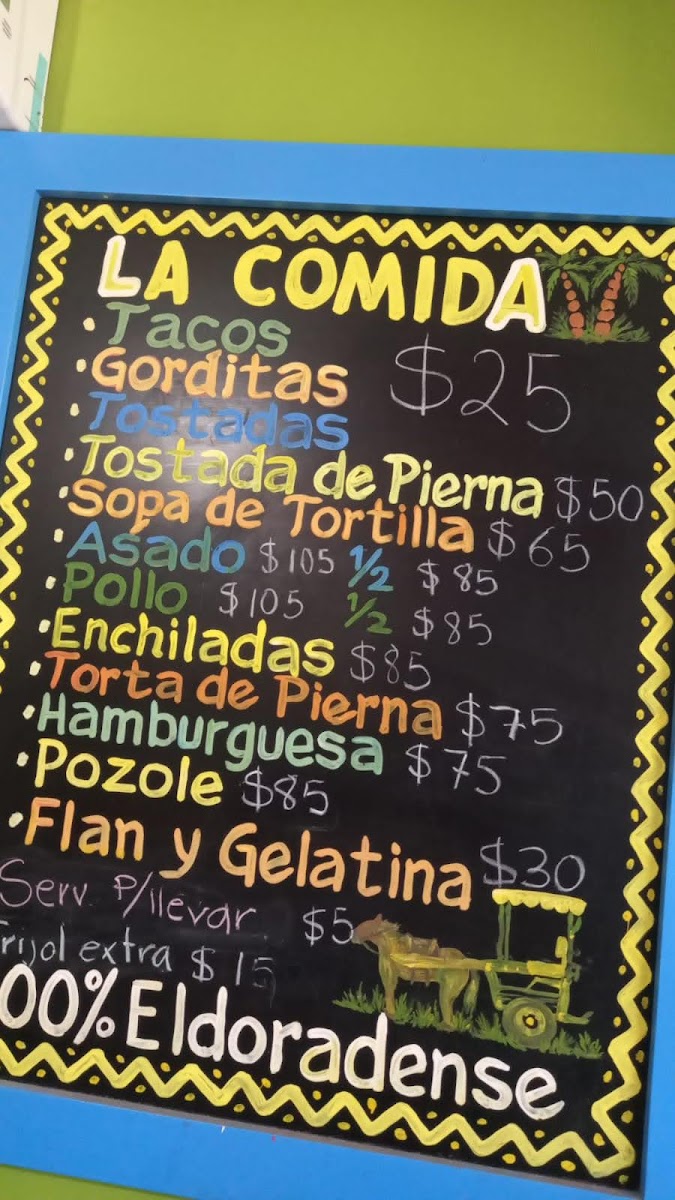 LA COMIDA
Tacos
Gorditas $25
Tostadas
Tostada de Pierna $50
Sopa de Tortilla $65
Asado $105 1/2 $85
Pollo $105 1/2 $85
Enchiladas $85
Torta de Pierna $75
Hamburguesa $75
Pozole $85
Flan y Gelatina $30
Serv. P/llevar $5
rijol extra $15
00% Eldoradense